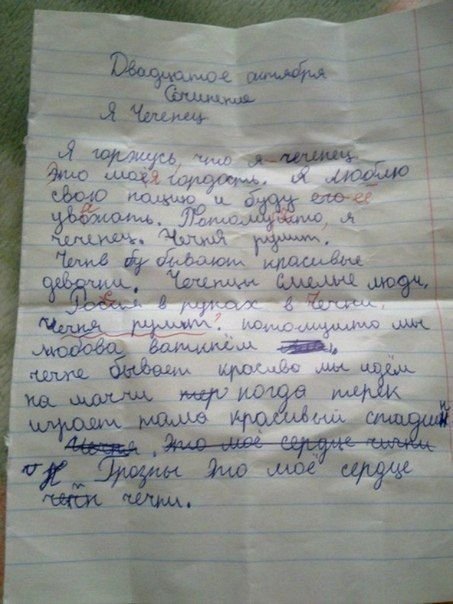 Двадцатое октября
Сочинение
Я Чеченец
Я горжусь, что я - чеченец.
Это моея гордость. Я люблю
свою нацию и буду его ее
уважать. Потомушто, я
чеченец. Чечня рулит.
Чечне бу бывают красивые
девочки. Чеченцы смелые люди,
Россия в руках в Чечни.
Чечня рулит? потомушто мы
любова ваткнём
чечне бывает красиво мы идём
на матчи тер когда терек
играет тама красивый стадион
Чечня. Это моё сердце чични
Н Грозны это моё сердце
чечни.